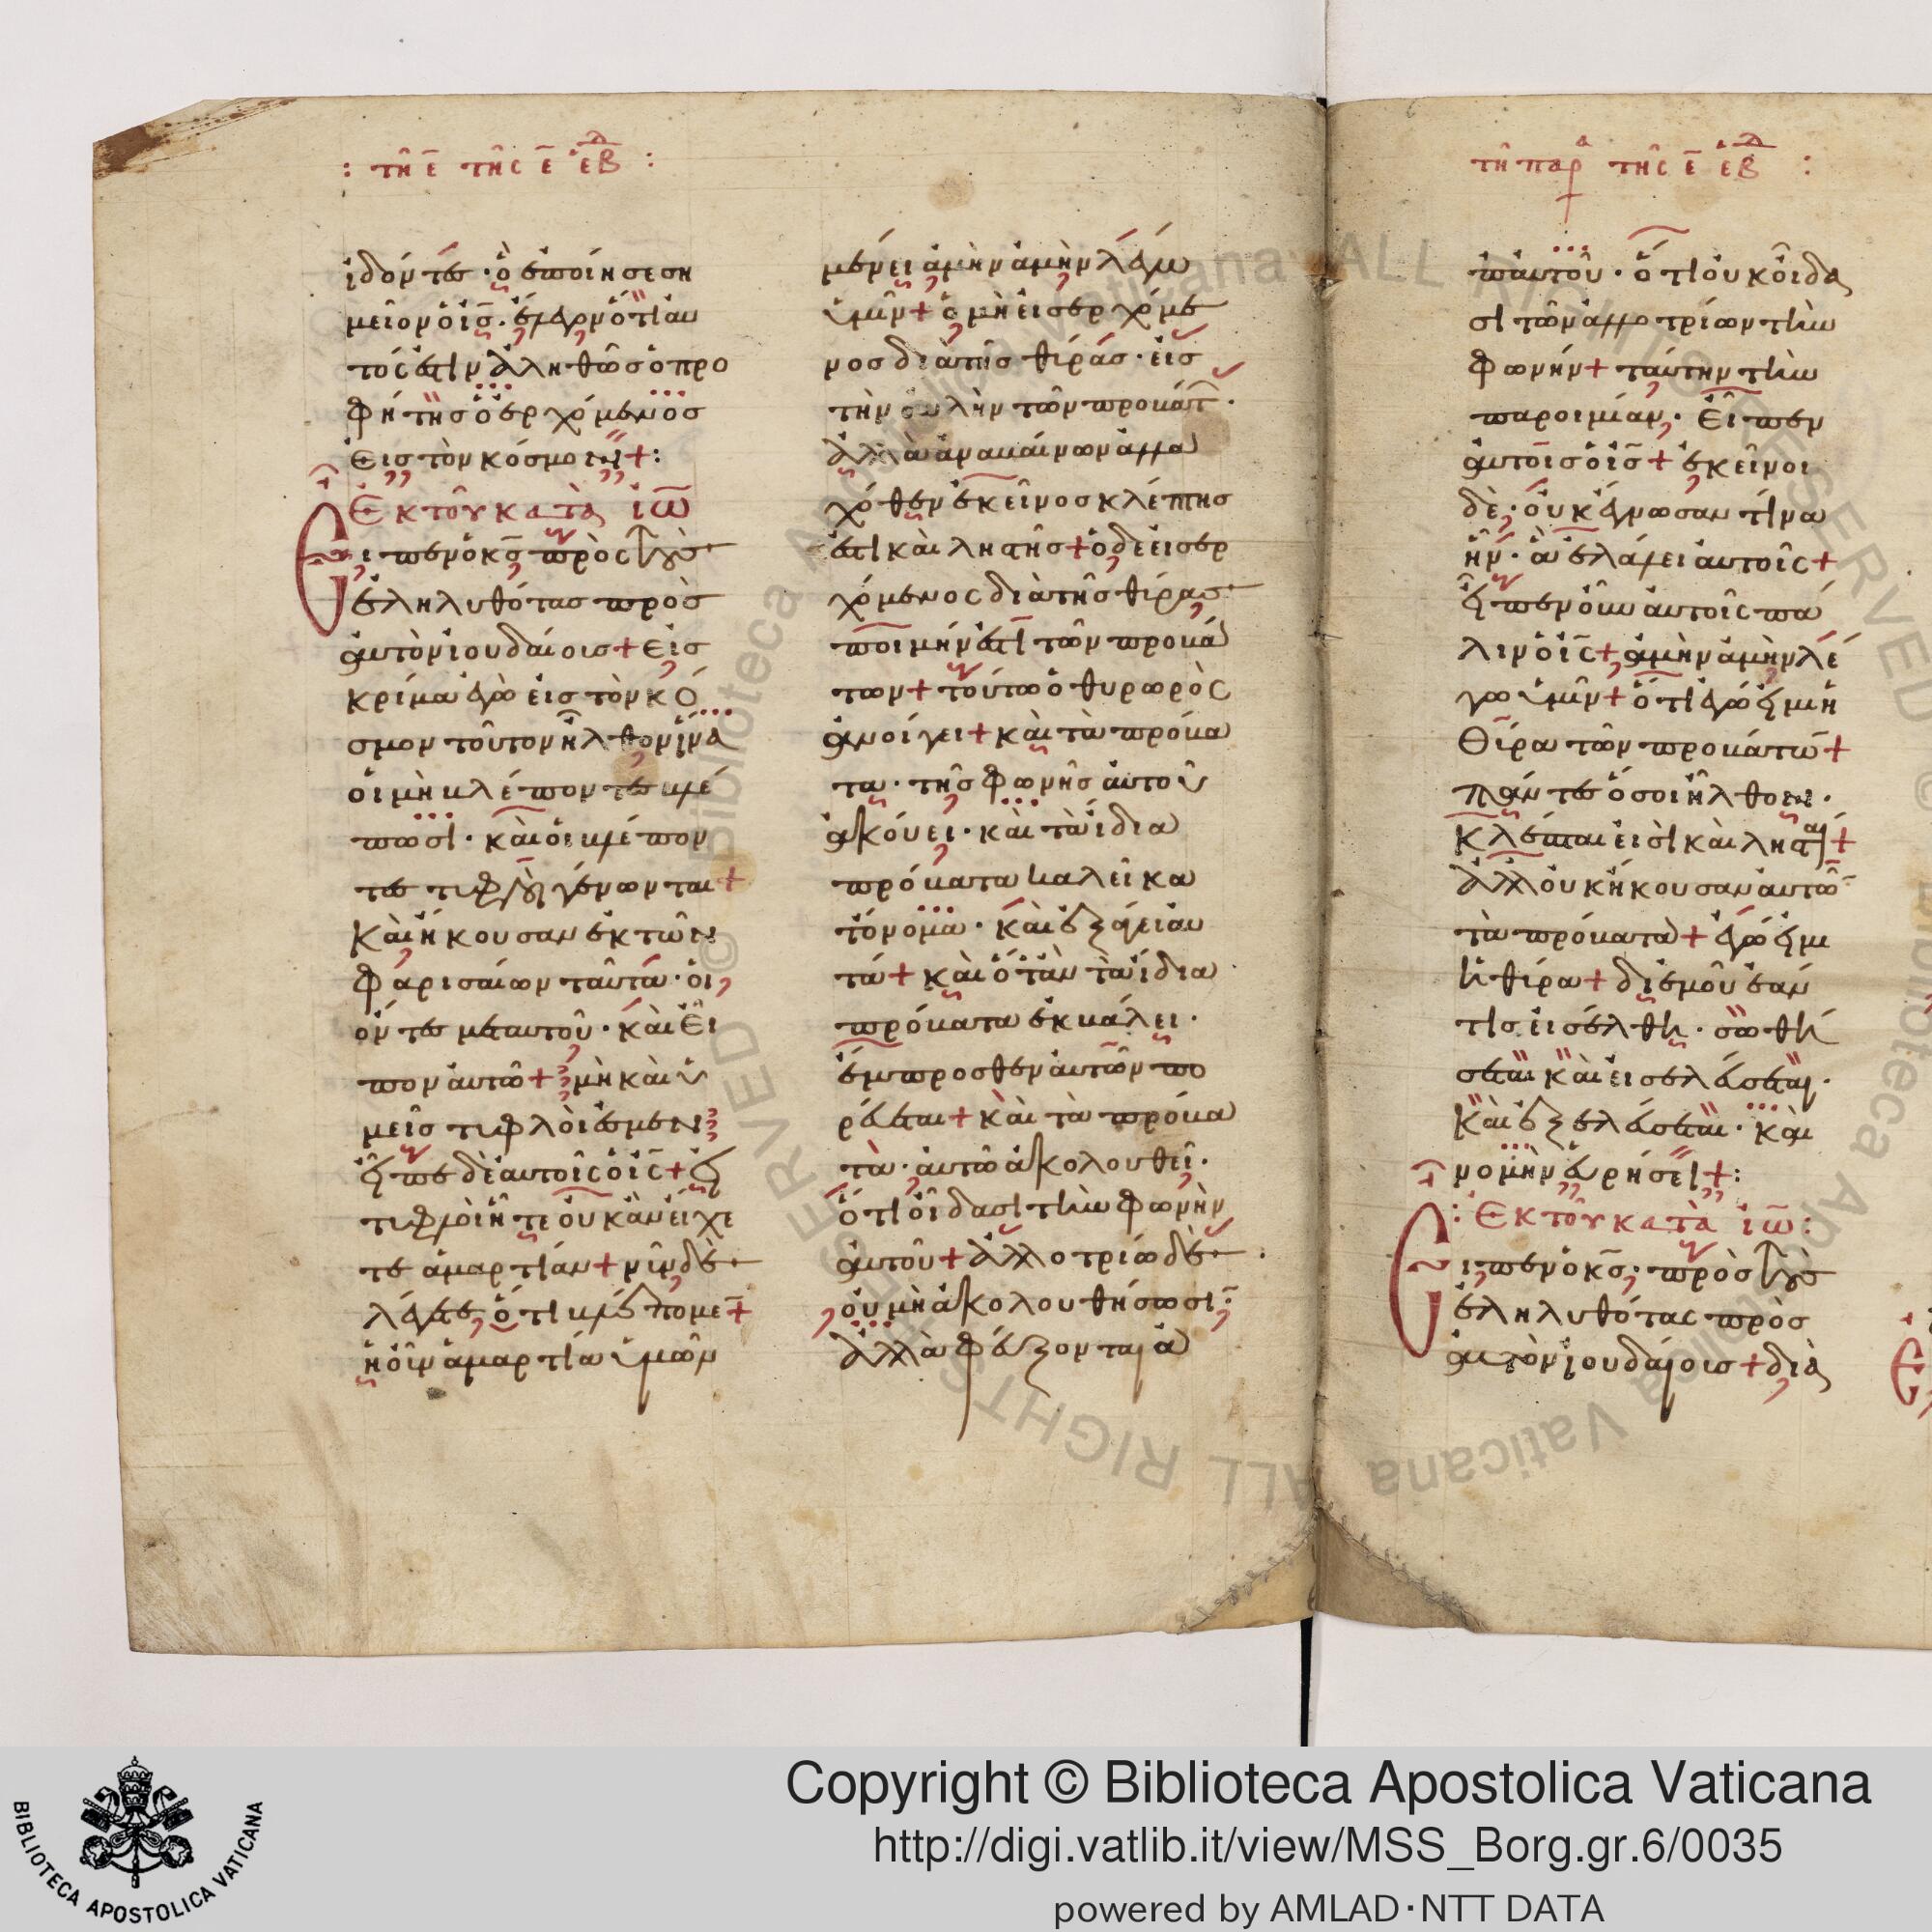 : τῆ ε̄ τῆς ε̄ ἑβδ :
ἰδόντες · ὃ ἐποίησε ση
μεῖον ὁ ἰς̄ . ἔλεγον ὅτι αὐ
τός ἐστιν ἀληθῶς ὁ προ
φήτης ὁ ἐρχόμενος
εἰς τὸν κόσμον + :
Ἐκ τοῦ κατὰ ἰω̄
Εἶπεν ὁ κς̄ πρὸς τοὺς
ἐληλυθότας πρὸς
αὐτὸν ἰουδαίοις + εἰς
κρίμα ἐγὼ εἰς τὸν κό
σμον τοῦτον ἦλθον ἵνα
οἱ μὴ βλέποντες βλέ
πωσι · καὶ οἱ βλέπον
τες τυφλοὶ γένωνται +
Καὶ ἤκουσαν ἐκ τῶν
φαρισαίων ταῦτα · οἱ
ὄντες μετ αὐτοῦ · καὶ εἶ
πον αὐτῶ + μὴ καὶ ὑ
μεῖς τυφλοὶ ἐσμεν
εἶπε δὲ αὐτοῖς ὁ ἰς̄ + εἰ
τυφλοὶ ἦτε οὐκ ἂν εἴχε
τε ἁμαρτίαν + νῦν δὲ
λέγετε, ὅτι βλέπομεν +
ἡ οὖν ἁμαρτία ὑμῶν
μένει ἀμὴν ἀμὴν λέγω
ὑμῖν + ὁ μὴ εἰσερχόμε
νος διὰ τῆς θίρας · εἰς
τὴν αὐλὴν τῶν προβάτ ·
ἀλλὰ ἀναβαίνων ἀλλα
χόθεν ἐκεῖνος κλέπτης
ἐστὶ καὶ ληστής + ὁ δὲ εἰσερ
χόμενος διὰ τῆς θίρας
ποιμήν ἐστι τῶν προβά
των + τούτω ὁ θυρωρὸς
ἀνοίγει + καὶ τὰ πρόβα
τα · τῆς φωνῆς αὐτοῦ
ἀκούει · καὶ τὰ ἴδια
πρόβατα καλεῖ κα
τ όνομα · καὶ ἐξάγει αὐ
τά + καὶ ὅταν τὰ ἴδια
πρόβατα ἐκβάλει ·
ἔμπροσθεν αὐτῶν πο
ρεύεται + καὶ τὰ πρόβα
τα · αὐτῶ ἀκολουθεῖ ·
ὅτι οἴδασι τὴν φωνὴν
αὐτοῦ + ἀλλοτρίω δὲ ·
οὐ μὴ ἀκολουθήσωσι ·
ἀλλὰ φεύξονται ἀ
τῆ παρ τῆς ε̄ ἑβδ :
π αὐτοῦ · ὅτι οὐκ οἴδα
σι τῶν ἀλλοτρίων τὴν
φωνήν + ταύτην τὴν
παροιμίαν · εἶπεν
αὐτοῖς ὁ ἰς̄ + ἐκεῖνοι
δὲ · οὐκ ἔγνωσαν τίνα
ἦν · ἃ ἐλάλει αὐτοῖς +
εἶπεν οὖν αὐτοῖς πά
λιν ὁ ἰς̄ + ἀμὴν ἀμὴν λέ
γω ὑμῖν + ὅτι ἐγώ εἰμι ἡ
θίρα τῶν προβάτω̄ +
Πάντες ὅσοι ἦλθον ·
κλέπται εἰσὶ καὶ λησταί +
ἀλλ οὐκ ἤκουσαν αὐτῶ̄
τὰ πρόβατα + ἐγώ εἰμι
ἡ θίρα + δι ἐμοῦ ἐάν
τις εἰσέλθη · σωθή
σεται καὶ εἰσελεύσεται ·
καὶ ἐξελεύσεται · καὶ
νομὴν εὑρήσει + :
: Ἐκ τοῦ κατὰ ἰω̄ :
Εἶπεν ὁ κς̄ · πρὸς τοὺς
ἐληλυθότας πρὸς
αὐτὸν ἰουδαίοις + διὰ
BIBLIOTECA APOSTOLICA VATICANA
Copyright © Biblioteca Apostolica Vaticana
http://digi.vatlib.it/view/MSS_Borg.gr.6/0035
powered by AMLAD·NTT DATA